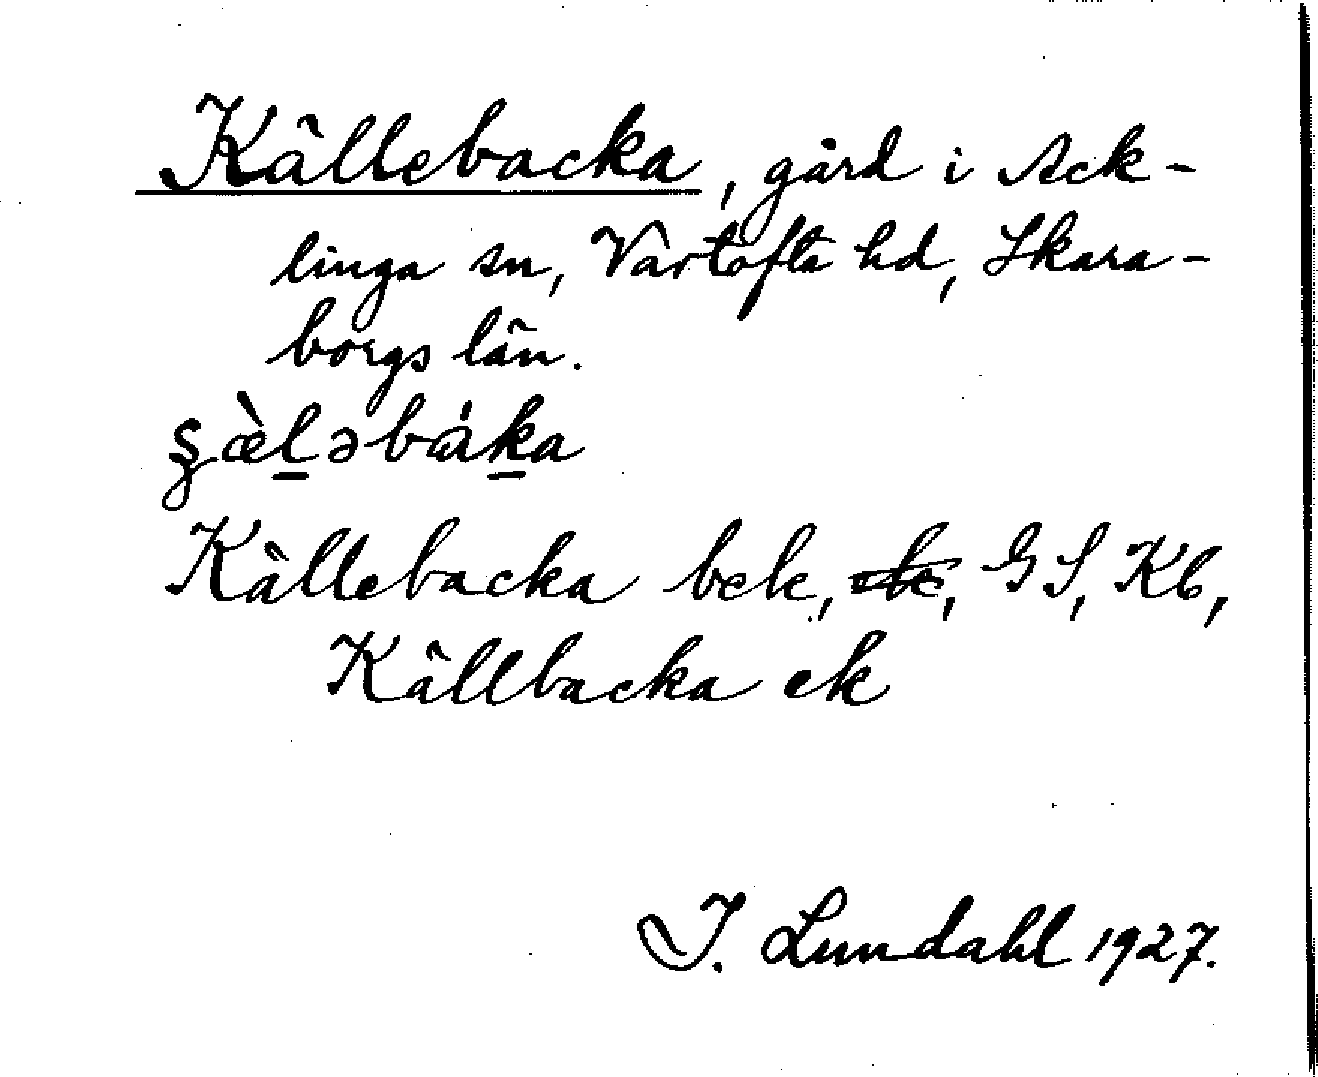 Källebacka, gård i Ack-
linga sn, Vartofta hd, Skara-
borgs län.
ʂæ̀l̠əbák̠a
Källebacka bek, ek, GS, Kb,
Källbacka ek
I. Lundahl 1927.